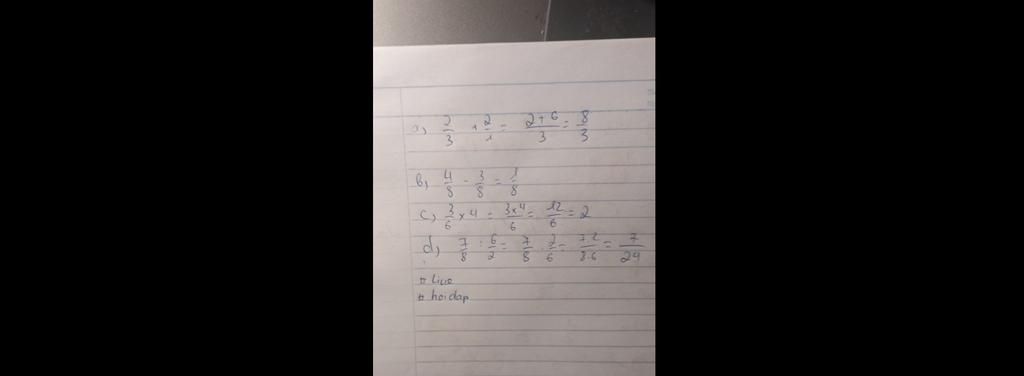 a, 2/3 + 2/1 = 2+6/3 = 8/3
b, 4/8 - 3/8 = 1/8
c, 3/6 x 4 = 3x4/6 = 12/6 = 2
d, 7/8 : 6/2 = 7/8 . 2/6 = 7.2/8.6 = 7/24
# Lice
# hoidap